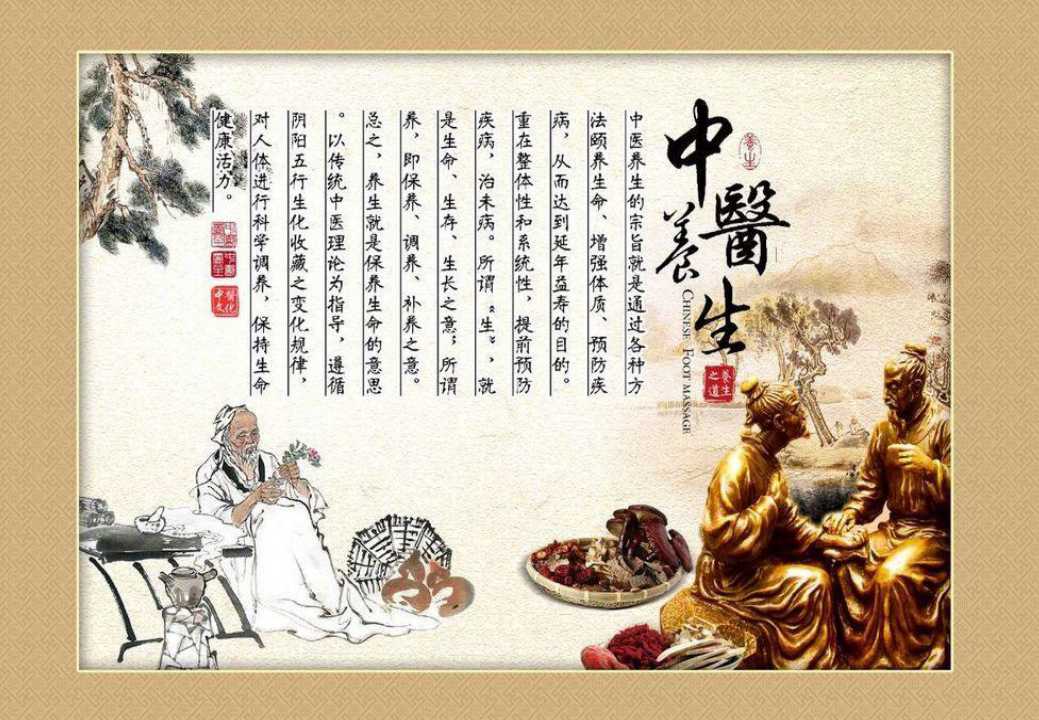 中醫養生
養生
CHINESE FOOT MASSAGE
養生之道
中医养生的宗旨就是通过各种方
法颐养生命、增强体质、预防疾
病，从而达到延年益寿的目的。
重在整体性和系统性，提前预防
疾病，治未病。所谓“生”，就
是生命、生存、生长之意；所谓
养，即保养、调养、补养之意。
总之，养生就是保养生命的意思
。以传统中医理论为指导，遵循
阴阳五行生化收藏之变化规律，
对人体进行科学调养，保持生命
健康活力。